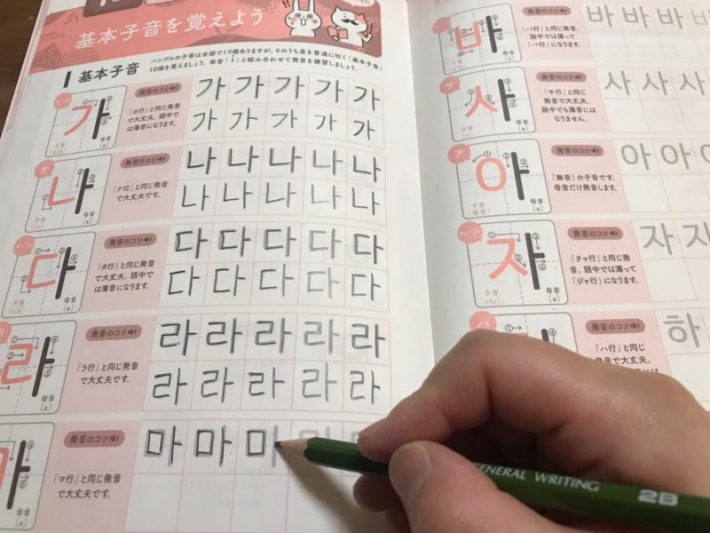 基本子音を覚えよう
ハングルの子音は全部で19個ありますが、そのうち息を普通に吐く「基本子音」
10個を覚えましょう。母音「ㅏ」と組み合わせて発音を練習しましょう。
基本子音
가
発音のコツ
「カ行」と同じ発音
で大丈夫。語中で
は濁音になります。
가 가 가 가 가
가 가 가 가 가
나
発音のコツ
「ナ行」と同じ発音
で大丈夫です。
나 나 나 나 나
나 나 나 나 나
다
発音のコツ
「タ行」と同じ発音
で大丈夫。語中で
は濁音になります。
다 다 다 다 다
다 다 다 다 다
라
発音のコツ
「ラ行」と同じ発音
で大丈夫です。
라 라 라 라 라
라 라 라 라 라
마
発音のコツ
「マ行」と同じ発音
で大丈夫です。
마 마 마
바
発音のコツ
「パ行」と同じ発音
で大丈夫。語中では濁って
「バ行」になります。
바 바 바 바
사
発音のコツ
「サ行」と同じ
発音で大丈夫。
語中でも濁音には
なりません。
사 사 사 사
아
発音のコツ
「無音」の子音です。
母音だけ発音します。
아 아
자
発音のコツ
「チャ行」と同じ発
音。語中では濁って
「ジャ行」になります。
자 자
発音のコツ
「ハ行」と同じ
発音で大丈夫。
하
GENERAL WRITING 2B